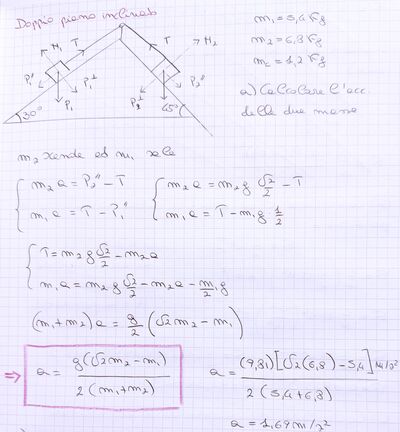 Doppio piano inclinato
m₁ = 5,4 Kg
m₂ = 6,8 Kg
m_c = 1,2 Kg
a) Calcolare l'acc.
delle due masse
N₁ T T N₂
P₁'' P₁ P₁⊥ P₂⊥ P₂''
30° 45°
m₂ scende ed m₁ sale
m₂ a = P₂'' - T
m₁ a = T - P₁''
m₂ a = m₂ g √2/2 - T
m₁ a = T - m₁ g 1/2
T = m₂ g √2/2 - m₂ a
m₁ a = m₂ g √2/2 - m₂ a - m₁/2 g
(m₁ + m₂) a = g/2 (√2 m₂ - m₁)
⇒ a = g(√2 m₂ - m₁) / 2(m₁ + m₂)
a = (9,81)[√2(6,8) - 5,4] m/s² / 2(5,4 + 6,8)
a = 1,69 m/s²